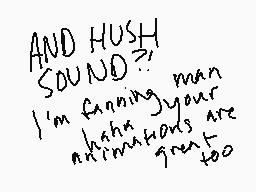 AND HUSH
SOUND?!
I'm fanning man
haha your
animations are
great too